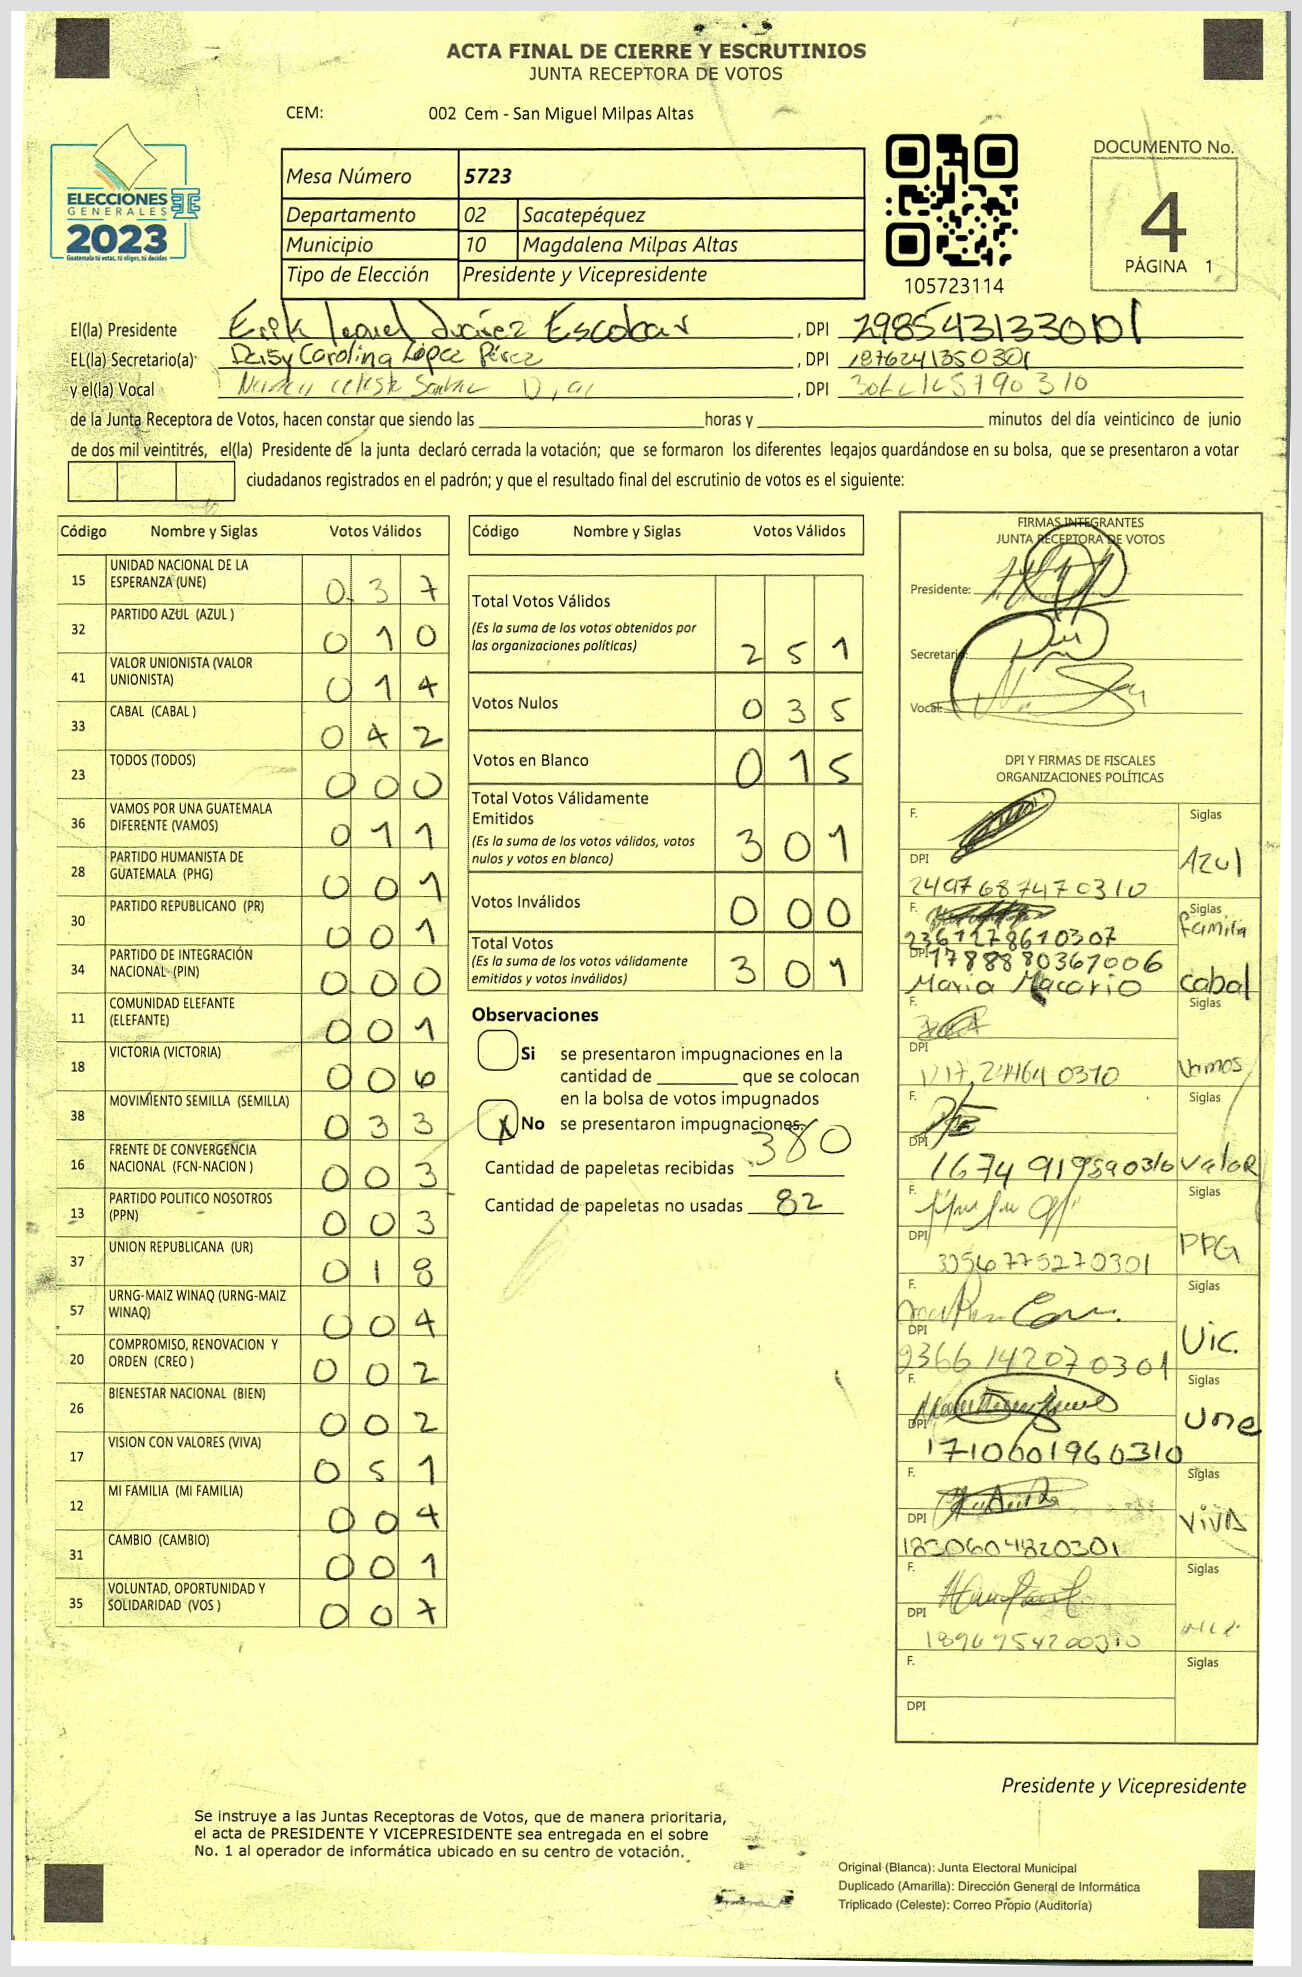 ACTA FINAL DE CIERRE Y ESCRUTINIOS
JUNTA RECEPTORA DE VOTOS
CEM: 002 Cem - San Miguel Milpas Altas
ELECCIONES
GENERALES
2023
Guatemala tú votas, tú eliges, tú decides
Mesa Número 5723
Departamento 02 Sacatepéquez
Municipio 10 Magdalena Milpas Altas
Tipo de Elección Presidente y Vicepresidente
105723114
DOCUMENTO No.
4
PÁGINA 1
El(la) Presidente Erik Juárez Escobar, DPI 2985431330101
EL(la) Secretario(a) Deisy Carolina López Pérez, DPI 1876241350301
y el(la) Vocal, DPI
de la Junta Receptora de Votos, hacen constar que siendo las horas y minutos del día veinticinco de junio
de dos mil veintitrés, el(la) Presidente de la junta declaró cerrada la votación; que se formaron los diferentes legajos guardándose en su bolsa, que se presentaron a votar
ciudadanos registrados en el padrón; y que el resultado final del escrutinio de votos es el siguiente:
Código Nombre y Siglas Votos Válidos
15 UNIDAD NACIONAL DE LA ESPERANZA (UNE) 037
32 PARTIDO AZUL (AZUL ) 010
41 VALOR UNIONISTA (VALOR UNIONISTA) 014
33 CABAL (CABAL ) 042
23 TODOS (TODOS) 000
36 VAMOS POR UNA GUATEMALA DIFERENTE (VAMOS) 011
28 PARTIDO HUMANISTA DE GUATEMALA (PHG) 001
30 PARTIDO REPUBLICANO (PR) 001
34 PARTIDO DE INTEGRACIÓN NACIONAL (PIN) 000
11 COMUNIDAD ELEFANTE (ELEFANTE) 001
18 VICTORIA (VICTORIA) 006
38 MOVIMIENTO SEMILLA (SEMILLA) 033
16 FRENTE DE CONVERGENCIA NACIONAL (FCN-NACION ) 003
13 PARTIDO POLITICO NOSOTROS (PPN) 003
37 UNION REPUBLICANA (UR) 018
57 URNG-MAIZ WINAQ (URNG-MAIZ WINAQ) 004
20 COMPROMISO, RENOVACION Y ORDEN (CREO ) 002
26 BIENESTAR NACIONAL (BIEN) 002
17 VISION CON VALORES (VIVA) 051
12 MI FAMILIA (MI FAMILIA) 004
31 CAMBIO (CAMBIO) 001
35 VOLUNTAD, OPORTUNIDAD Y SOLIDARIDAD (VOS ) 007
Código Nombre y Siglas Votos Válidos
Total Votos Válidos 251
(Es la suma de los votos obtenidos por
las organizaciones políticas)
Votos Nulos 035
Votos en Blanco 015
Total Votos Válidamente
Emitidos 301
(Es la suma de los votos válidos, votos
nulos y votos en blanco)
Votos Inválidos 000
Total Votos 301
(Es la suma de los votos válidamente
emitidos y votos inválidos)
Observaciones
Si se presentaron impugnaciones en la
cantidad de que se colocan
en la bolsa de votos impugnados
X No se presentaron impugnaciones.
Cantidad de papeletas recibidas 380
Cantidad de papeletas no usadas 82
FIRMAS INTEGRANTES
JUNTA RECEPTORA DE VOTOS
Presidente:
Secretario:
Vocal:
DPI Y FIRMAS DE FISCALES
ORGANIZACIONES POLÍTICAS
F. Siglas
DPI 2497687470310 Azul
F. Siglas
2361278610307 familia
DPI 1788880367006
Maria Macario cabal
F. Siglas
DPI Vamos
F. Siglas
DPI 1674919590310 Valor
F. Siglas
DPI 3056775270301 PPG
F. Siglas
DPI 2366142070301 Vic.
F. Siglas
DPI 1710001960310 Une
F. Siglas
DPI 1830604820301 VIVA
F. Siglas
DPI
F. Siglas
DPI
Presidente y Vicepresidente
Se instruye a las Juntas Receptoras de Votos, que de manera prioritaria,
el acta de PRESIDENTE Y VICEPRESIDENTE sea entregada en el sobre
No. 1 al operador de informática ubicado en su centro de votación.
Original (Blanca): Junta Electoral Municipal
Duplicado (Amarilla): Dirección General de Informática
Triplicado (Celeste): Correo Propio (Auditoría)